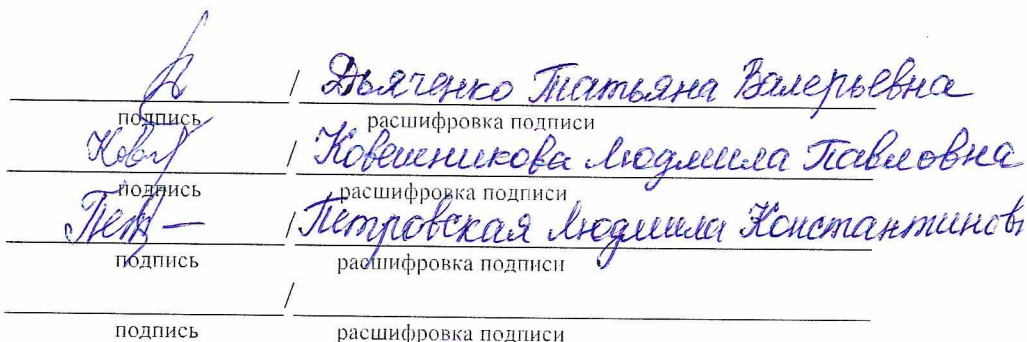 / Дьяченко Татьяна Валерьевна
подпись расшифровка подписи
/ Ковешникова Людмила Павловна
подпись расшифровка подписи
/ Петровская Людмила Константиновн
подпись расшифровка подписи
/
подпись расшифровка подписи